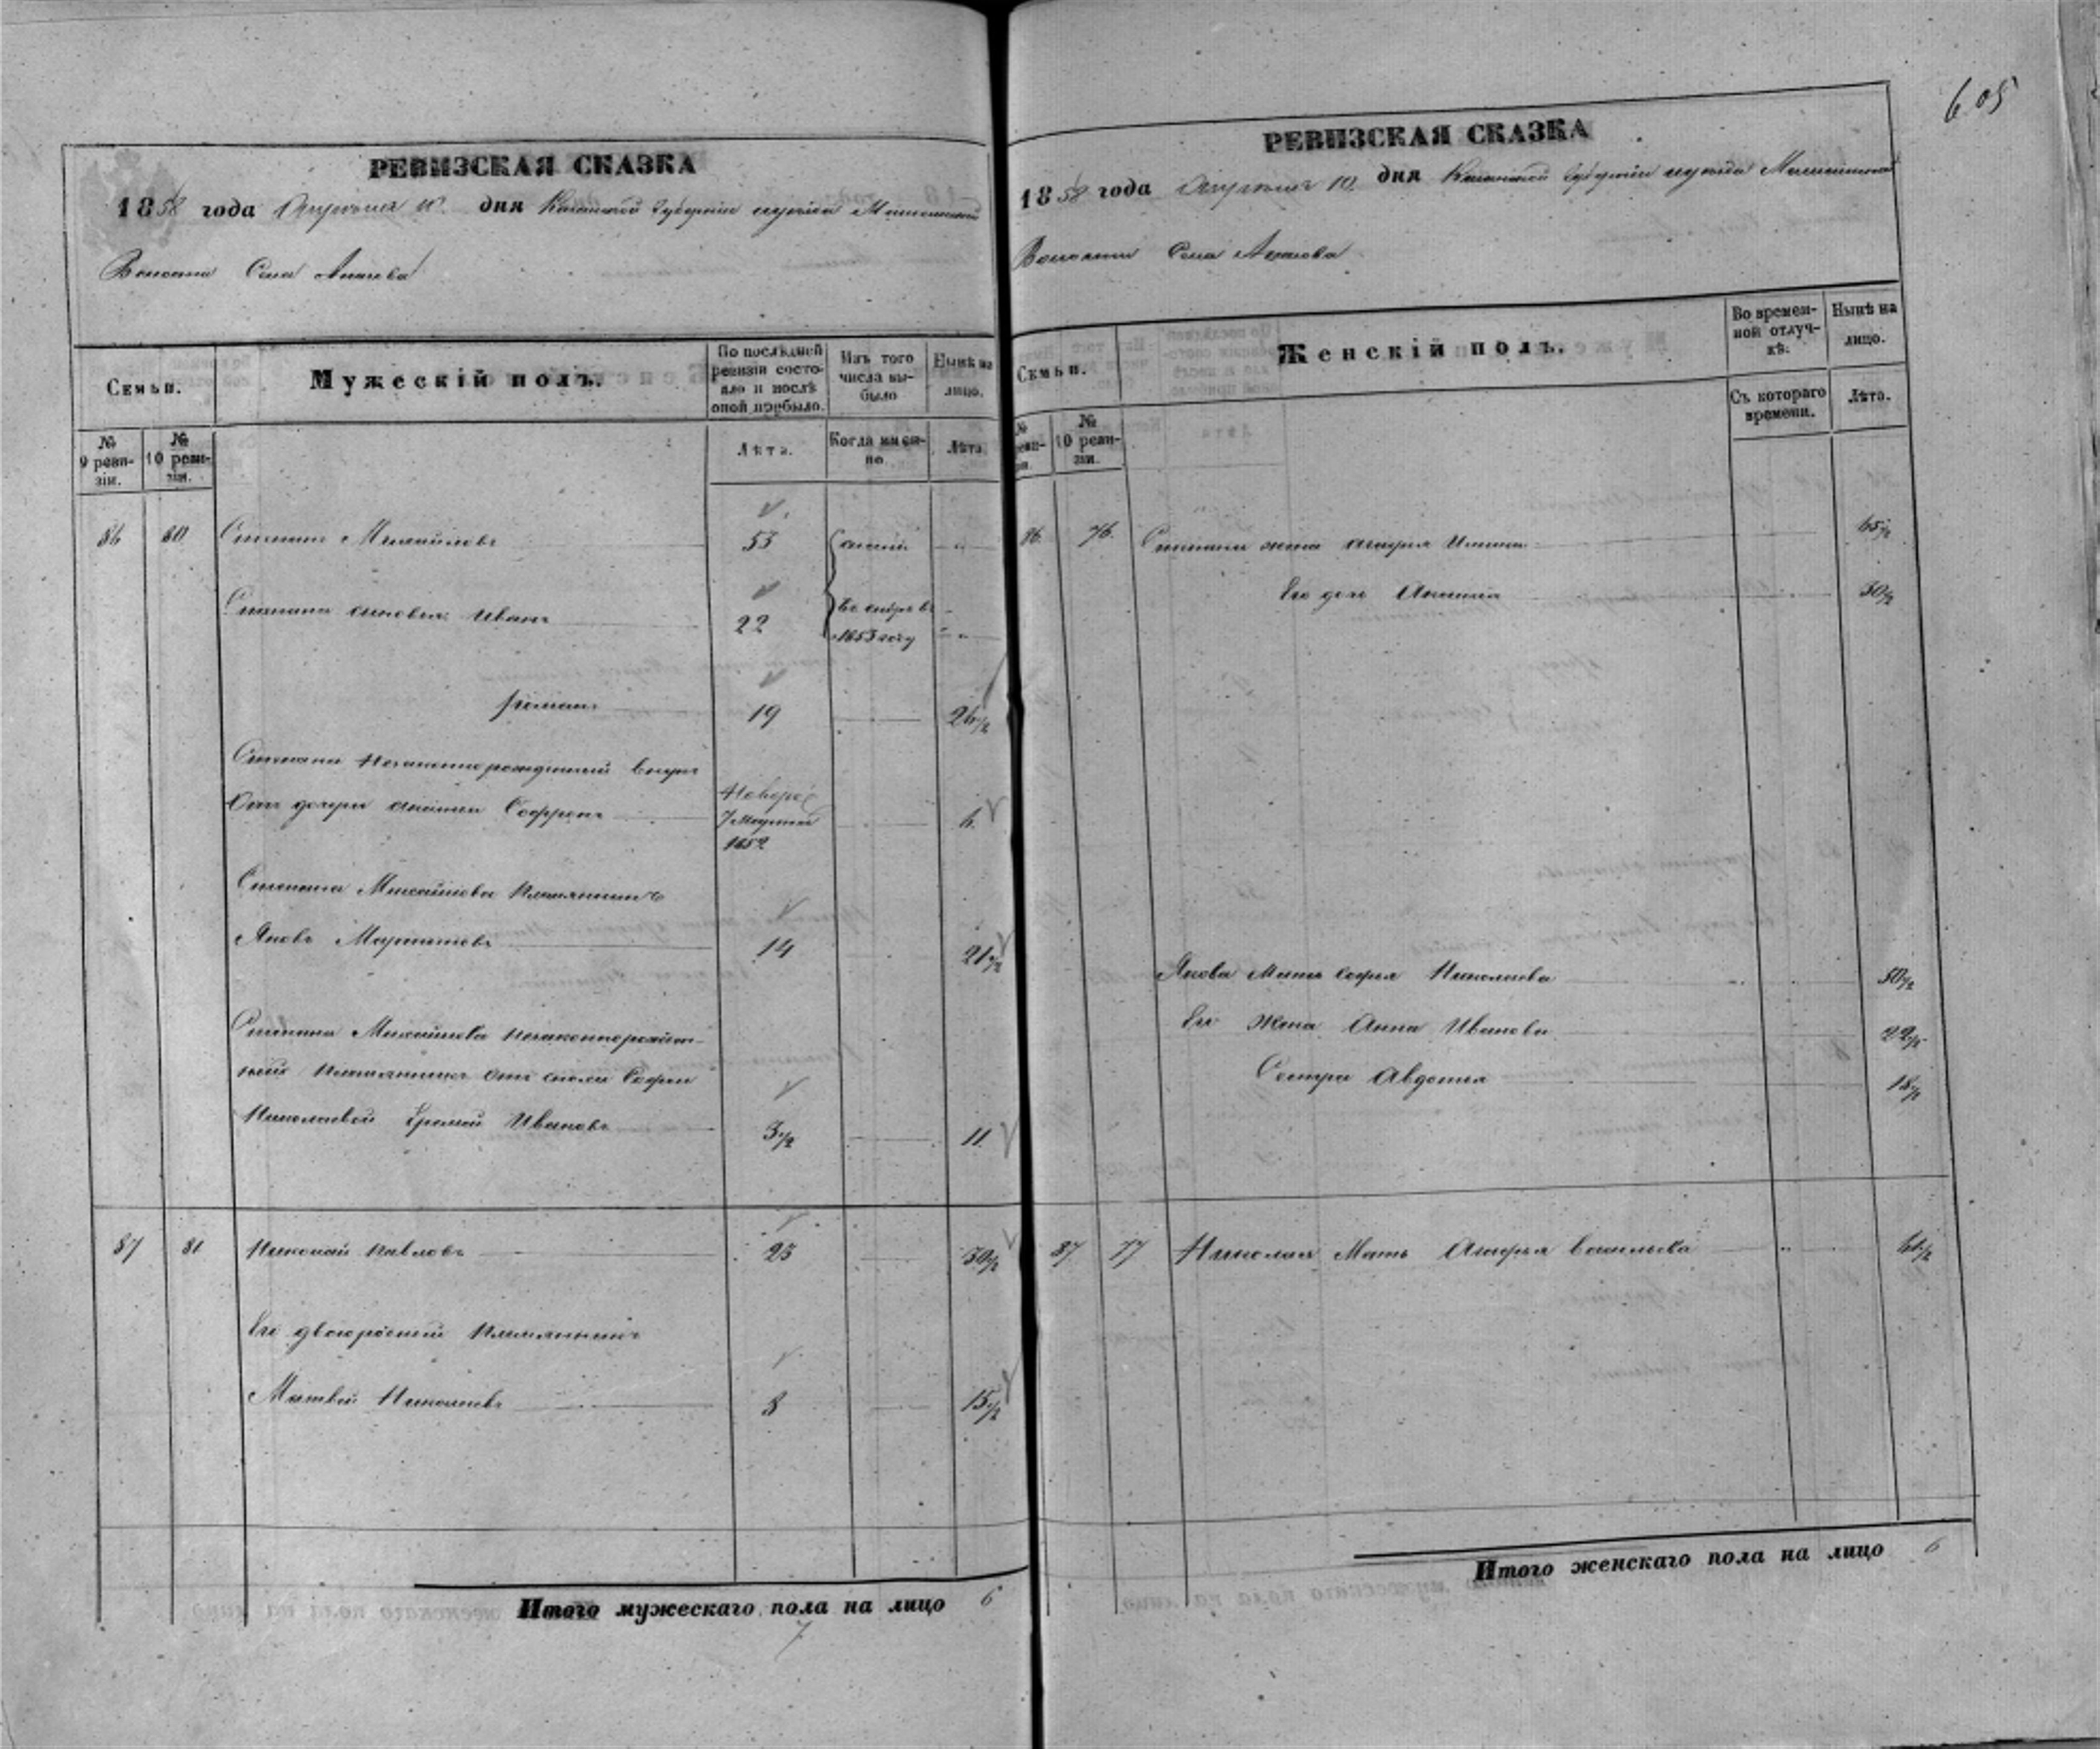 605
РЕВИЗСКАЯ СКАЗКА
1858 года Апреля 10 дня Казанской Губернии и уезда
Волости Села
Семьи.
Мужескій полъ.
По послѣдней ревизіи состо-
яло и послѣ
оной прибыло.
Изъ того
числа вы-
было
Нынѣ на
лицо.
№
9 реви-
зіи.
№
10 реви-
зіи.
Лѣта.
Когда имен-
но
Лѣта
86 80 Степанъ Михайловъ 53
Степана сыновья: Иванъ 22 1853 году
Романъ 19 26 1/2
Степана Незаконнорожденный внукъ
Отъ дочери Софронъ Новорож 6
7 Марта
1852
Степана Михайлова Племянникъ
Яковъ Мартыновъ 14 21 1/2
Степана Михайлова незаконнорожден-
ный Племянникъ отъ снохи Софьи
Николаевой Еремей Ивановъ 3 1/2 11
87 81 Николай Павловъ 23 30 1/2
Его двоюродный Племянникъ
Матвей 8 15 1/2
Итого мужескаго пола на лицо 6
7
РЕВИЗСКАЯ СКАЗКА
1858 года Апреля 10 дня Казанской Губернии и уезда
Волости Села
Семьи.
Женскій полъ.
Во времен-
ной отлуч-
кѣ.
Нынѣ на
лицо.
№
10 реви-
зіи.
Съ котораго
времени.
Лѣта.
86 76 Степана жена 65 1/2
Его дочь 30 1/2
Якова Мать Софья Николаева 50 1/2
Его Жена Анна Иванова 22 1/2
Сестра Авдотья 18 1/2
87 77 Николая Мать Агафья Васильева
Итого женскаго пола на лицо 6